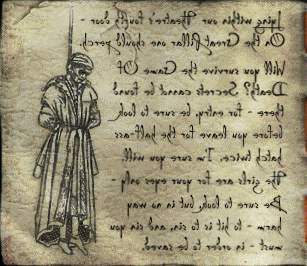 Lying within our Theatre's fourth door -
On the Great Pillar one should perch.
Will you survive the Game Of
Death? Secrets cannot be found
there - for entry, be sure to look
before you leave for the half-ass
hatch twice. I'm sure you will
The girls are for your eyes only -
Be sure to look, but in no way
harm - to hit is to sin, and sin you
must - in order to be saved.